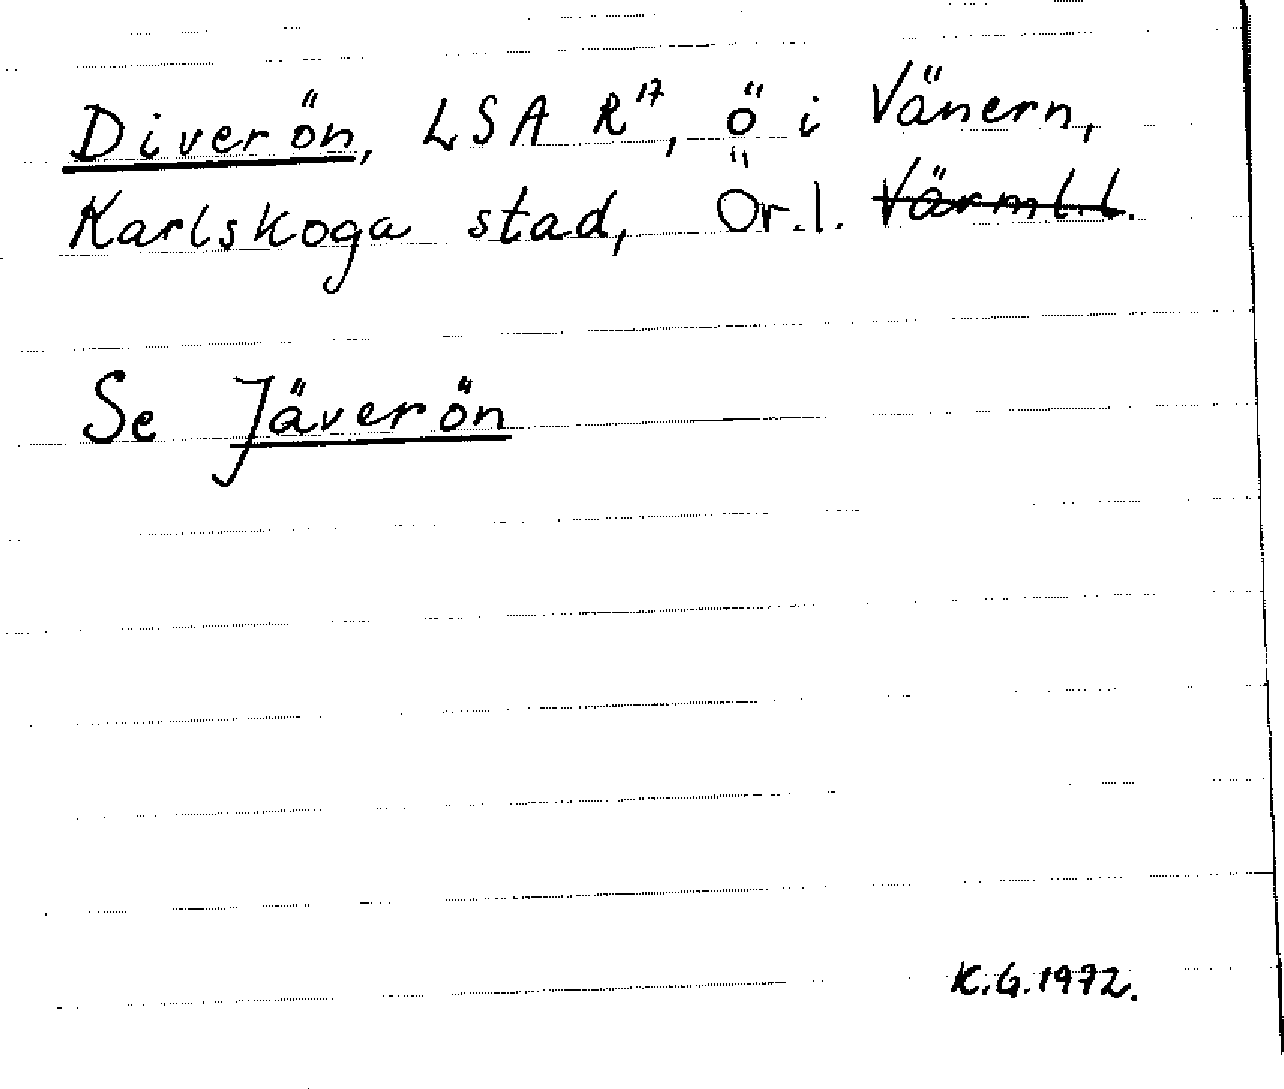 Diverön, LSA R¹⁷, ö i Vänern,
Karlskoga stad, Ör.l. Värml.l.
Se Jäverön
K.G.1972.